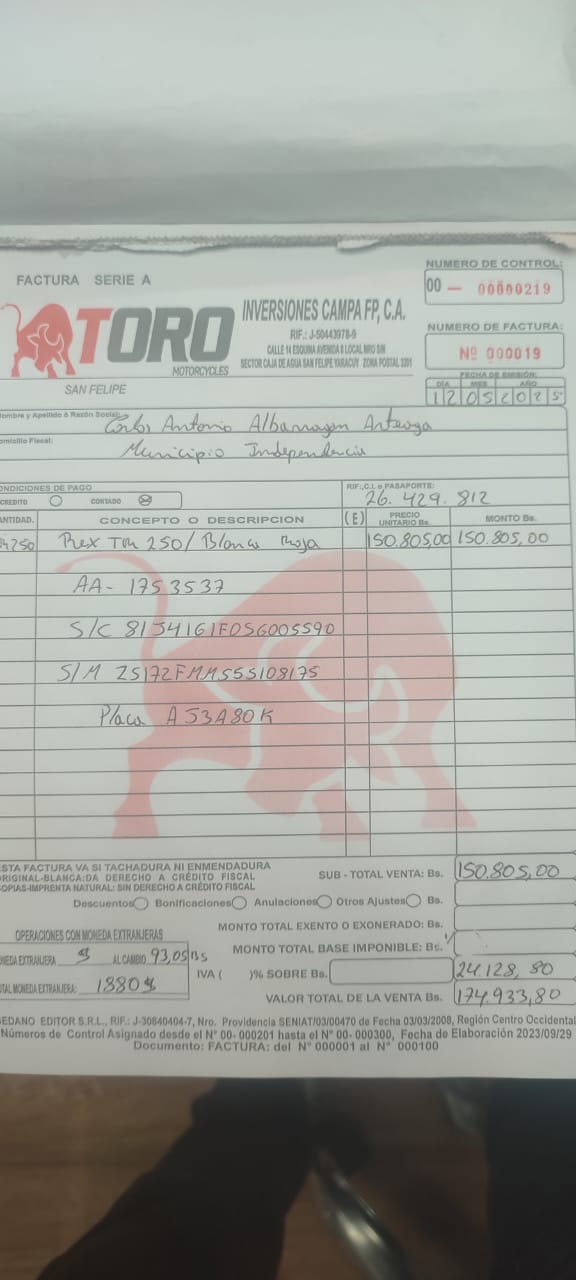 FACTURA SERIE A
NUMERO DE CONTROL:
00 - 00000219
TORO
MOTORCYCLES
SAN FELIPE
INVERSIONES CAMPA FP, C.A.
RIF.: J-50443978-9
CALLE 14 ESQUINA AVENIDA 8 LOCAL NRO S/N
SECTOR CAJA DE AGUA SAN FELIPE YARACUY ZONA POSTAL 3201
NUMERO DE FACTURA:
Nº 000019
FECHA DE EMISIÓN:
DÍA MES AÑO
12 05 2025
Nombre y Apellido ó Razón Social: Carlos Antonio
Domicilio Fiscal: Municipio Independencia
CONDICIONES DE PAGO
CREDITO CONTADO
RIF:,C.I. o PASAPORTE:
26.429.812
CANTIDAD. CONCEPTO O DESCRIPCION (E) PRECIO UNITARIO Bs. MONTO Bs.
TM 250 / Blanco Roja 150.805,00 150.805,00
AA- 1753537
S/C 8154161F0SG005590
S/M ZS172FMM5S5108175
Placa A53A80K
ESTA FACTURA VA SI TACHADURA NI ENMENDADURA
ORIGINAL-BLANCA:DA DERECHO A CRÉDITO FISCAL
COPIAS-IMPRENTA NATURAL: SIN DERECHO A CRÉDITO FISCAL
SUB - TOTAL VENTA: Bs. 150.805,00
Descuentos Bonificaciones Anulaciones Otros Ajustes Bs.
MONTO TOTAL EXENTO O EXONERADO: Bs.
OPERACIONES CON MONEDA EXTRANJERAS
MONEDA EXTRANJERA $ AL CAMBIO 93,05BS
MONTO TOTAL BASE IMPONIBLE: Bs.
IVA ( )% SOBRE Bs. 24.128,80
TOTAL MONEDA EXTRANJERA: 1880$
VALOR TOTAL DE LA VENTA Bs. 174.933,80
SEDANO EDITOR S.R.L., RIF.: J-30840404-7, Nro. Providencia SENIAT/03/00470 de Fecha 03/03/2008, Región Centro Occidental
Números de Control Asignado desde el N° 00- 000201 hasta el N° 00- 000300, Fecha de Elaboración 2023/09/29
Documento: FACTURA: del N° 000001 al N° 000100